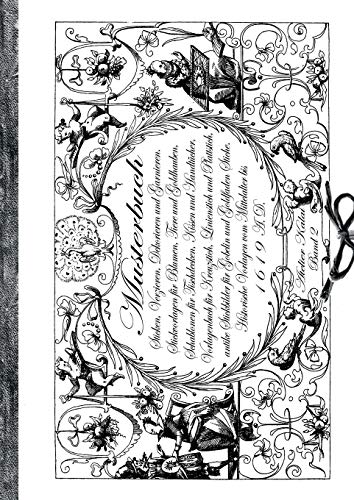 Musterbuch
Sticken, Verzieren, Dekorieren und Garnieren.
Stickvorlagen für Blumen, Tiere und Goldhauben,
Schablonen für Tischdecken, Kissen und Handtücher,
Vorlagenbuch für Kreuzstich, Leinenstich und Plattstich
antike Stickbilder für Gobelin und Goldfaden Stiche.
Historische Vorlagen vom Mittelalter bis
1619 A.D.
Heiner
Band 2